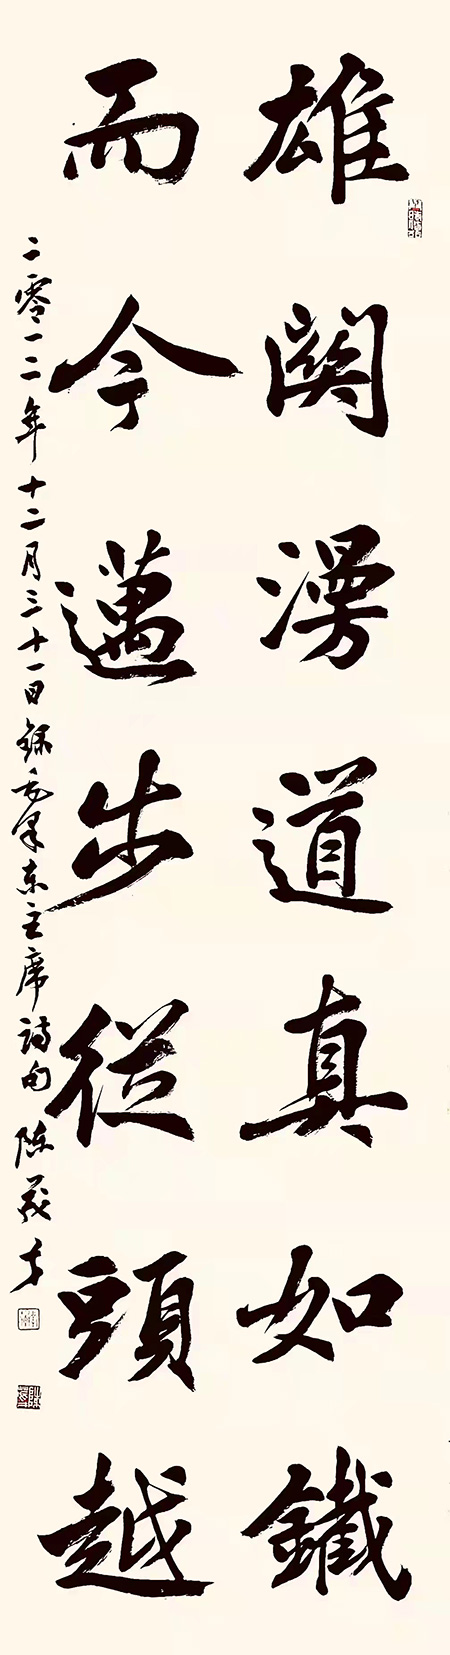 雄關漫道真如鐵
而今邁步從頭越
二零一二年十二月三十一日錄毛澤东主席詩句 陈